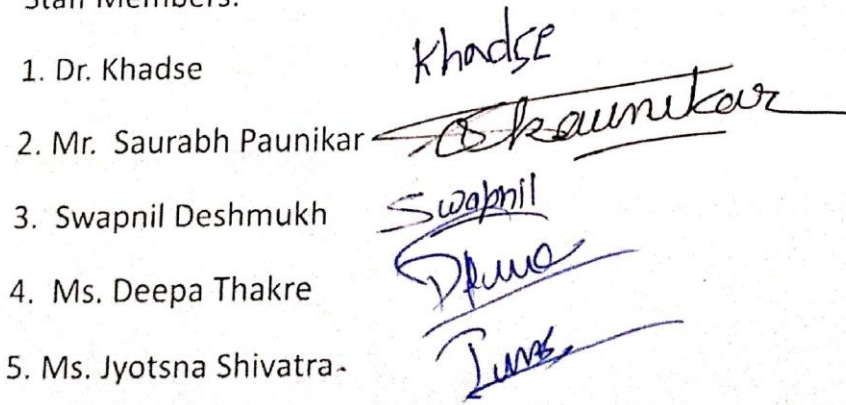 Staff Members:
1. Dr. Khadse Khadse
2. Mr. Saurabh Paunikar
3. Swapnil Deshmukh Swapnil
4. Ms. Deepa Thakre
5. Ms. Jyotsna Shivatra